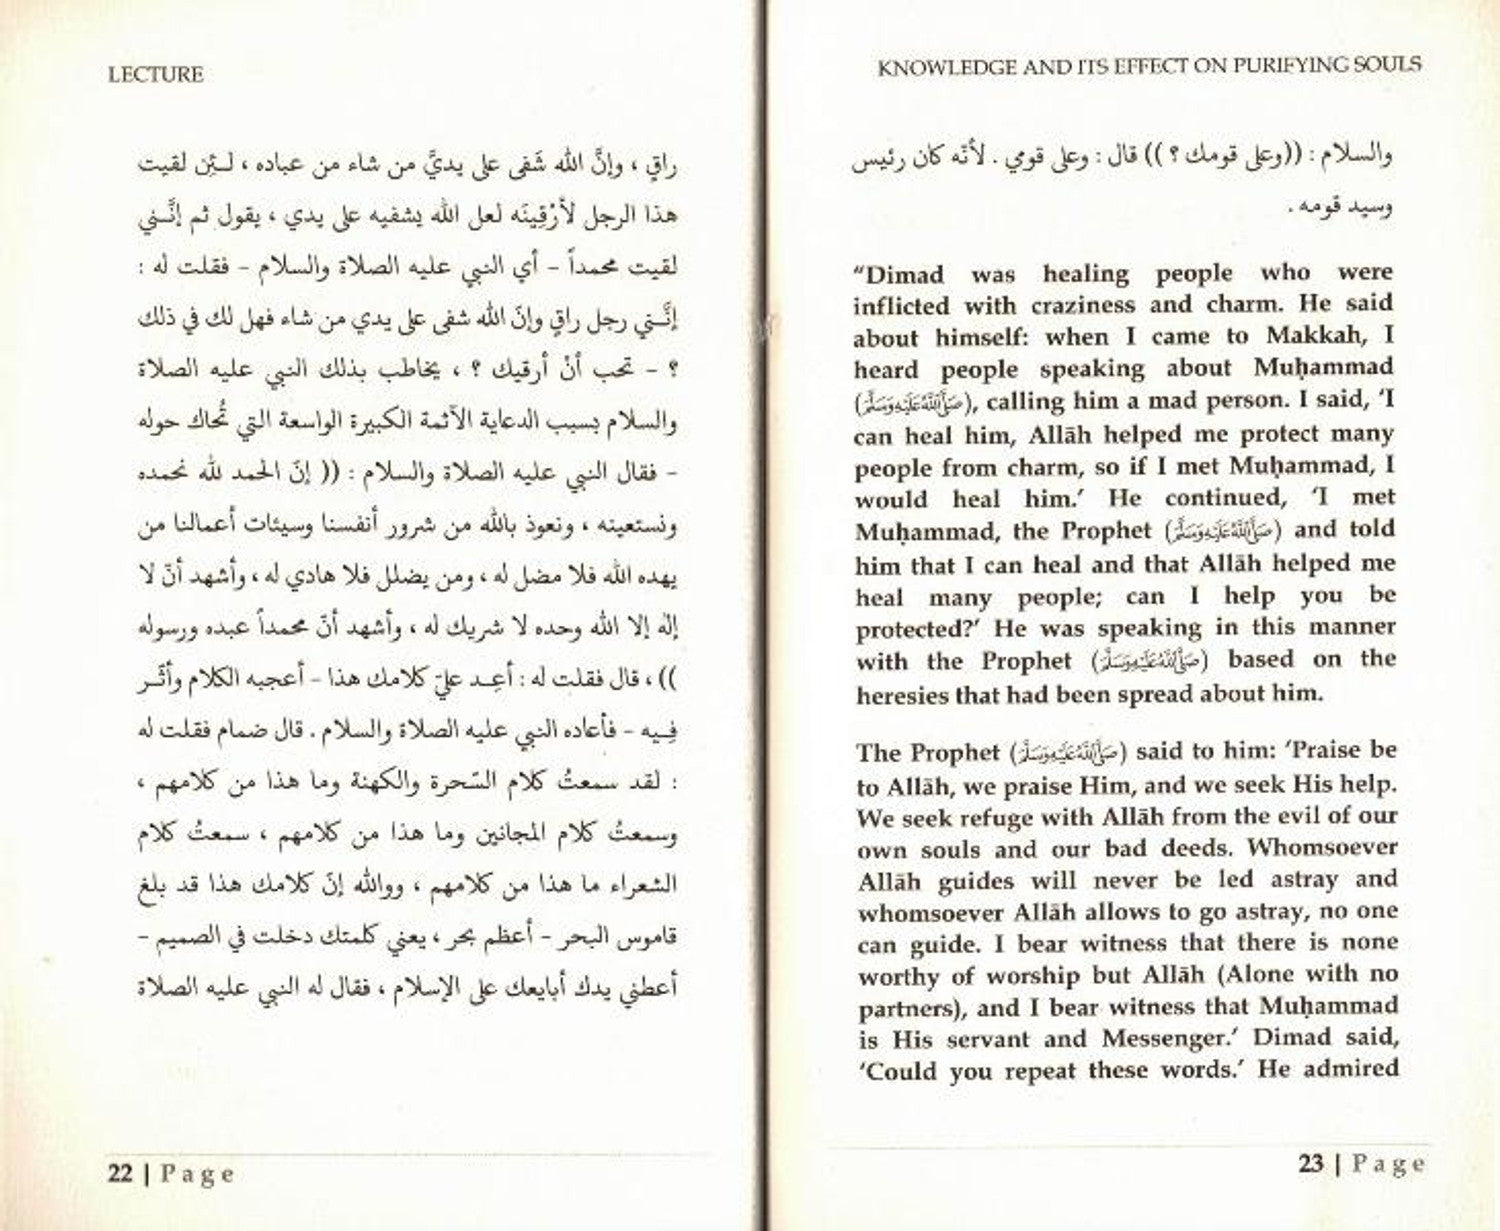 LECTURE
راقٍ ، وإنَّ الله شَفى على يديَّ من شاء من عباده ، لـئِن لقيت
هذا الرجل لأرْقِينَه لعل الله يشفيه على يدي ، يقول ثم إنَّـني
لقيت محمداً - أي النبي عليه الصلاة والسلام - فقلت له :
إنَّـني رجل راقٍ وإنّ الله شفى على يدي من شاء فهل لك في ذلك
؟ - تحب أنْ أرقيك ؟ ، يخاطب بذلك النبي عليه الصلاة
والسلام بسبب الدعاية الآثمة الكبيرة الواسعة التي تُحاك حوله
- فقال النبي عليه الصلاة والسلام : (( إنّ الحمد لله نحمده
ونستعينه ، ونعوذ بالله من شرور أنفسنا وسيئات أعمالنا من
يهده الله فلا مضل له ، ومن يضلل فلا هادي له ، وأشهد أنّ لا
إله إلا الله وحده لا شريك له ، وأشهد أنّ محمداً عبده ورسوله
)) ، قال فقلت له : أعِـد عليّ كلامك هذا - أعجبه الكلام وأثّـر
فِـيه - فأعاده النبي عليه الصلاة والسلام . قال ضمام فقلت له
: لقد سمعتُ كلام السّحرة والكهنة وما هذا من كلامهم ،
وسمعتُ كلام المجانين وما هذا من كلامهم ، سمعتُ كلام
الشعراء ما هذا من كلامهم ، ووالله إنّ كلامك هذا قد بلغ
قاموس البحر - أعظم بحر ، يعني كلمتك دخلت في الصميم -
أعطني يدك أبايعك على الإسلام ، فقال له النبي عليه الصلاة
22 | Page
KNOWLEDGE AND ITS EFFECT ON PURIFYING SOULS
والسلام : ((وعلى قومك ؟ )) قال : وعلى قومي . لأنّه كان رئيس
وسيد قومه .
“Dimad was healing people who were
inflicted with craziness and charm. He said
about himself: when I came to Makkah, I
heard people speaking about Muḥammad
(ﷺ), calling him a mad person. I said, ‘I
can heal him, Allāh helped me protect many
people from charm, so if I met Muḥammad, I
would heal him.’ He continued, ‘I met
Muḥammad, the Prophet (ﷺ) and told
him that I can heal and that Allāh helped me
heal many people; can I help you be
protected?’ He was speaking in this manner
with the Prophet (ﷺ) based on the
heresies that had been spread about him.
The Prophet (ﷺ) said to him: ‘Praise be
to Allāh, we praise Him, and we seek His help.
We seek refuge with Allāh from the evil of our
own souls and our bad deeds. Whomsoever
Allāh guides will never be led astray and
whomsoever Allāh allows to go astray, no one
can guide. I bear witness that there is none
worthy of worship but Allāh (Alone with no
partners), and I bear witness that Muḥammad
is His servant and Messenger.’ Dimad said,
‘Could you repeat these words.’ He admired
23 | Page